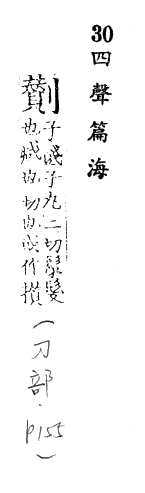 30 四聲篇海
劗 子踐子丸二切鬋髮
也減也切也或作攢
(刀部.p155)